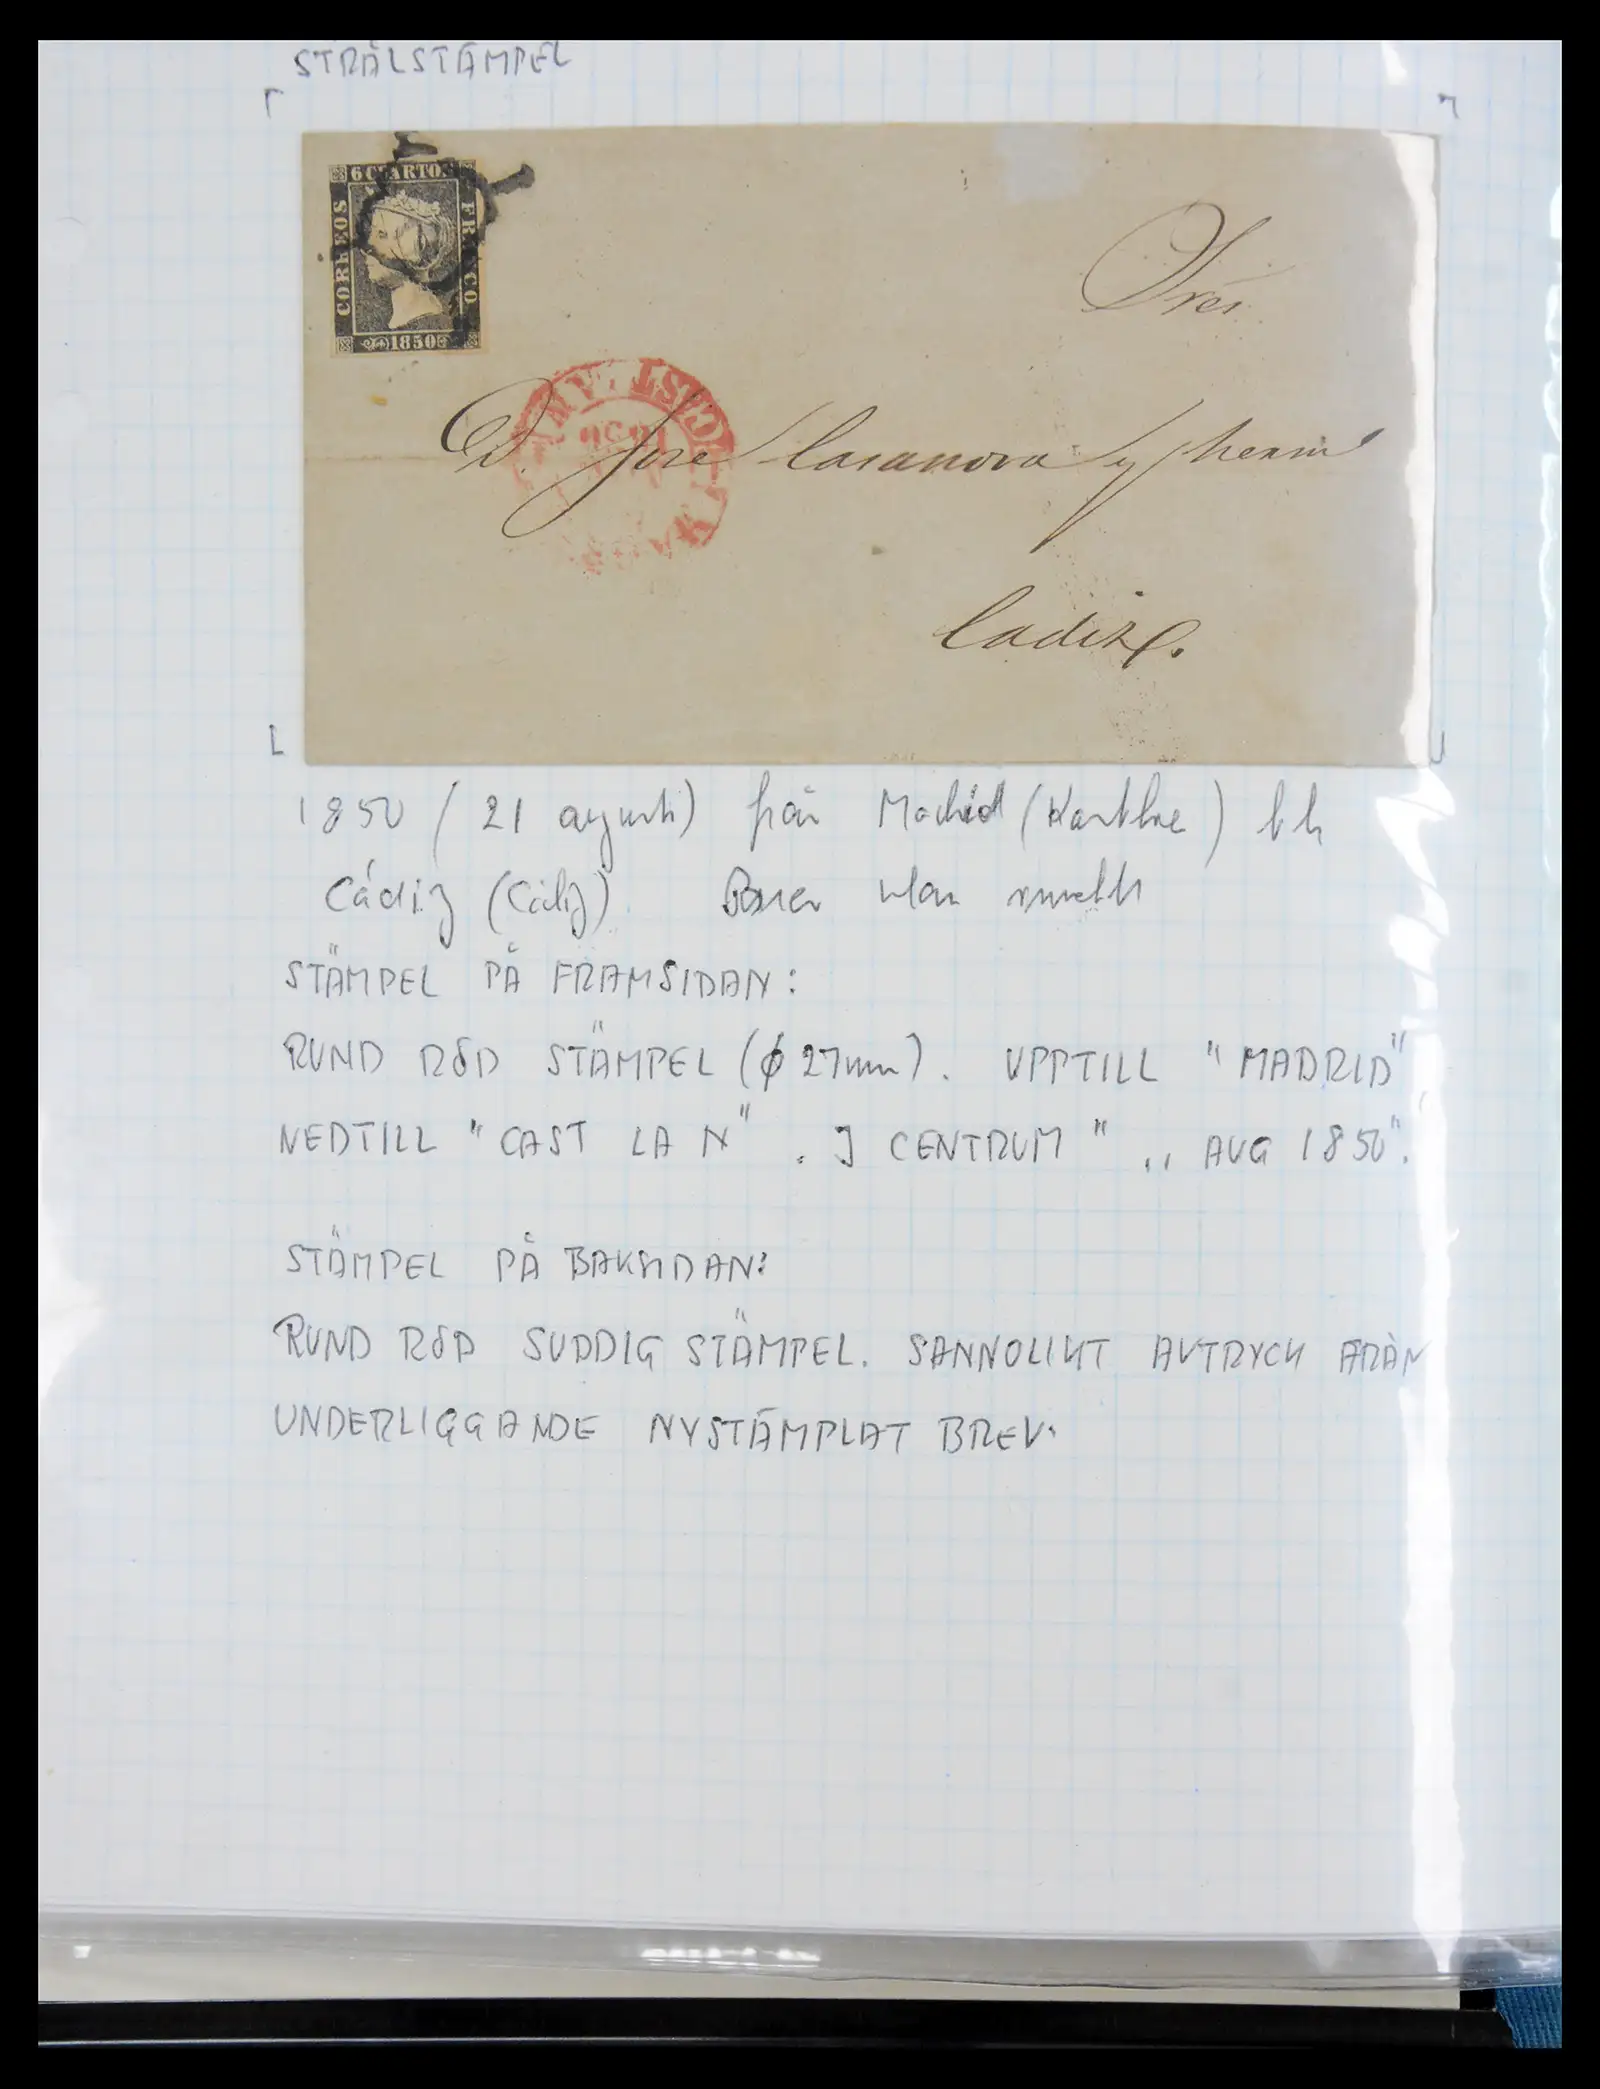 STRÅLSTÄMPEL
6 CUARTOS
CORREOS
FRANCO
1850
Sres
D. Jose Casanova y herm
CAST LA
1850
Cadiz.
1850 (21 augusti) från Madrid (Kastilie) till
Cádiz (Cádiz). Brev utan innehåll
STÄMPEL PÅ FRAMSIDAN:
RUND RÖD STÄMPEL (ϕ 27mm). UPPTILL "MADRID"
NEDTILL "CAST LA N". I CENTRUM " .. AUG 1850".
STÄMPEL PÅ BAKSIDAN:
RUND RÖD SUDDIG STÄMPEL. SANNOLIKT AVTRYCK FRÅN
UNDERLIGGANDE NYSTÄMPLAT BREV.